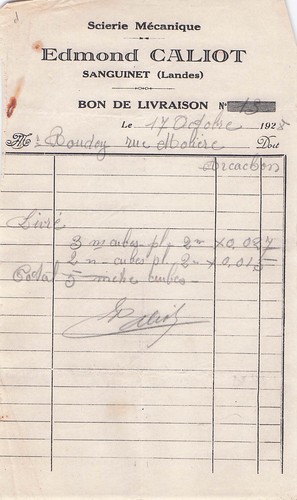 Scierie Mécanique
Edmond CALIOT
SANGUINET (Landes)
BON DE LIVRAISON N° 13
Le 17 Octobre 1928
M. Boudey rue Molière Doit
Arcachon
Livré
3 m cubes pl 2m × 0,087
2 m cubes pl 2m × 0,015
Total 5 mètre cubes
Caliot